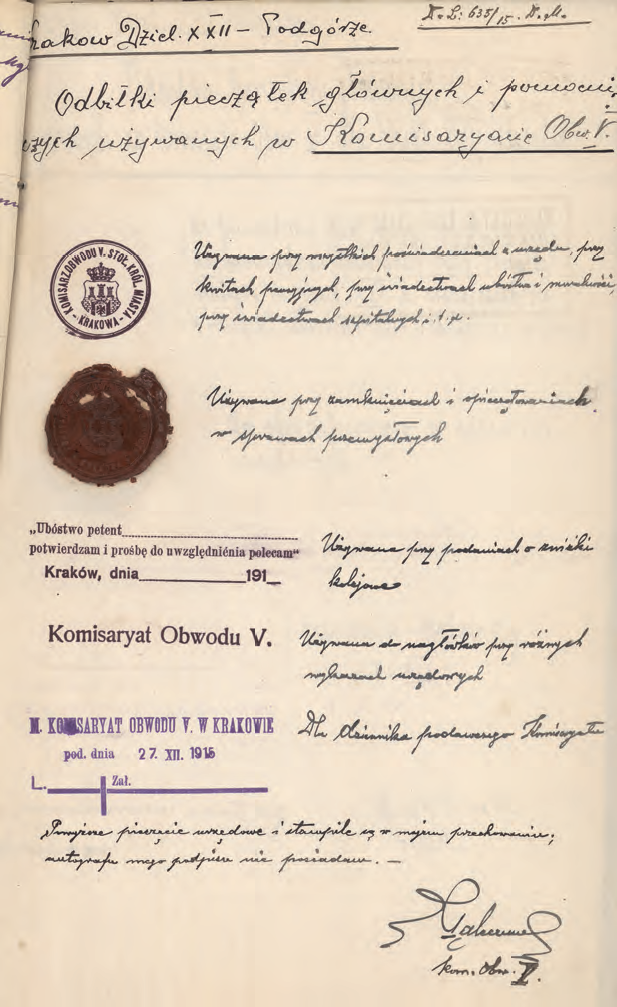 Krakow Dziel. XXII – Podgórze.
D. L: 635/15. D. M.
Odbitki pieczątek głównych i pomocni-
czych używanych w Komisaryacie Obw. V.
KOMISARZ OBWODU V. STOŁ. KRÓL. MIASTA
- KRAKOWA -
Używana przy wszystkich poświadczeniach z urzędu, przy
kwitach pensyjnych, przy świadectwach ubóstwa i moralności,
przy świadectwach szpitalnych i. t. p.
Używana przy zamknięciach i opieczętowaniach
w sprawach przemysłowych
„Ubóstwo petent
potwierdzam i prośbę do uwzględniénia polecam"
Kraków, dnia 191
Używana przy podaniach o zniżki
kolejowe
Komisaryat Obwodu V.
Używana do nagłówków przy różnych
wykazach urzędowych
M. KOMISARYAT OBWODU V. W KRAKOWIE
pod. dnia 27. XII. 1915
L. Zał.
Dla dziennika podawczego Komisaryatu
Powyższe pieczęcie urzędowe i stampile są w mojem przechowaniu;
autografu mego podpisu nie posiadam. –
kom. Obw. V.